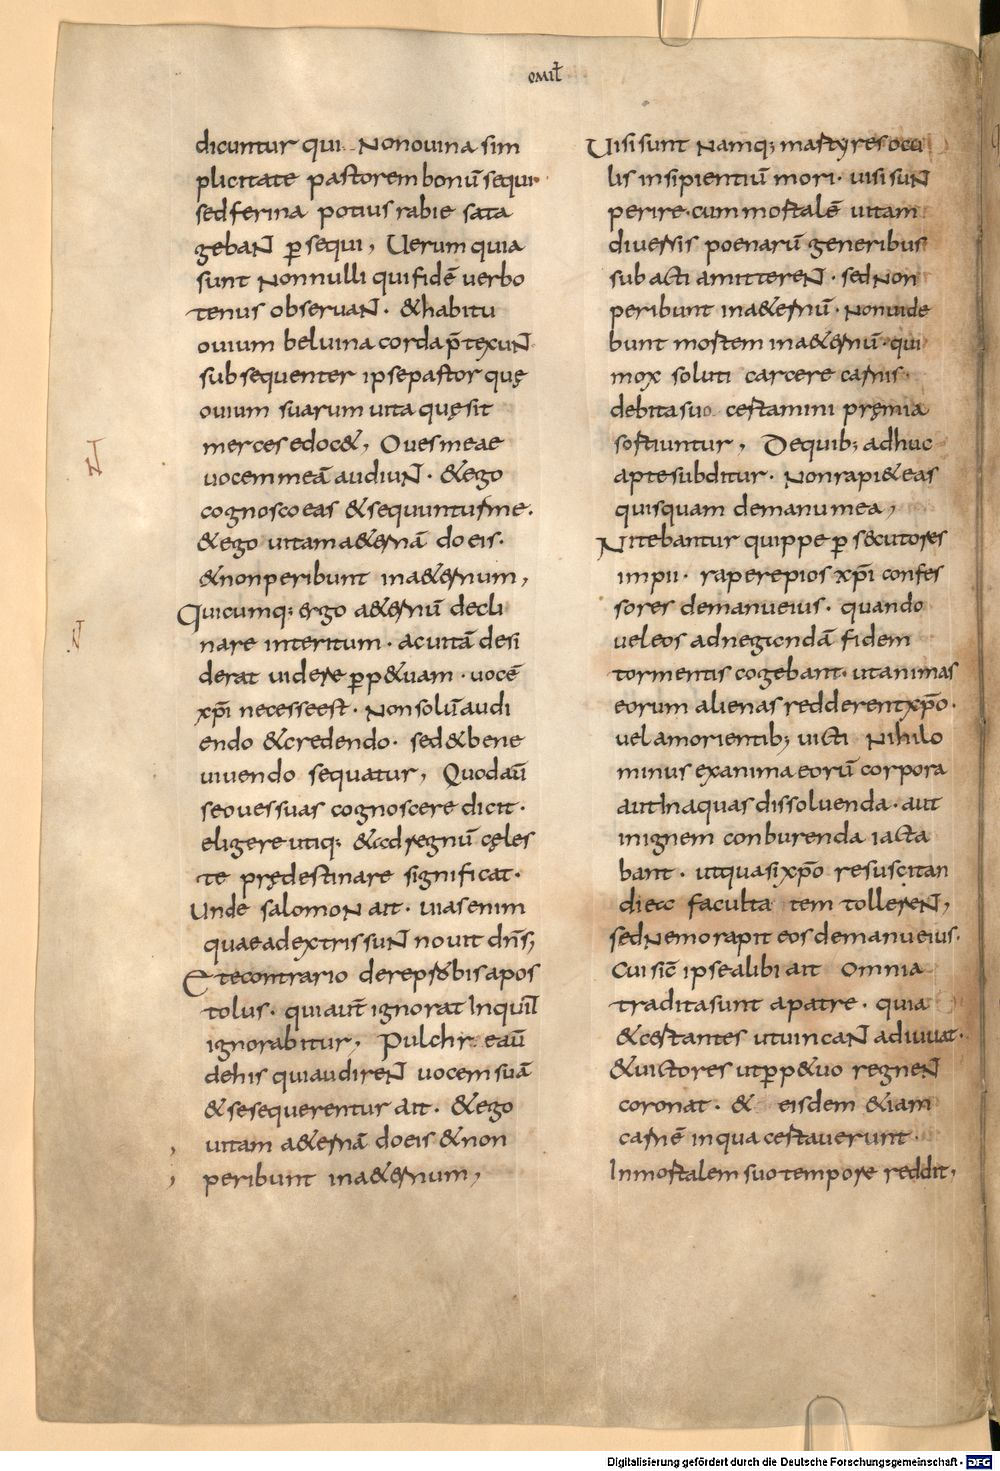 omił
dicuntur qui nonouina sim
plicitate pastorem bonū sequi
sed ferina potius rabie sata
gebant p̱sequi, Uerum quia
sunt nonnulli qui fidē uerbo
tenus obseruant. &habitu
ouium beluina corda p̄texunt
subsequenter ipse pastor quę
ouium suarum uita quę sit
merces edoc&, Oues meae
uocem meā audiunt. &ego
cognosco eas &sequuntur me.
&ego uitam a&ernā do eis.
&non peribunt in a&ernum,
Quicumq; ergo a&ernū decli
nare interitum. ac uitā desi
derat uidere p̱p&uam. uocē
xp̄i necesse est. Non solū audi
endo &credendo. sed&bene
uiuendo sequatur, Quod aū
se oues suas cognoscere dicit.
eligere utiq; &ad regnū cęles
te prędestinare significat.
Unde salomon ait. uias enim
quae a dextris sunt nouit dn̄s,
Et e contrario de reprobis apos
tolus. qui aut̄ ignorat Inquił
ignorabitur, Pulchr eaū
de his qui audirent uocem suā
&se sequerentur ait. &ego
uitam a&ernā do eis &non
peribunt in a&ernum,
Uisi sunt namq; martyres ocu
lis insipientiū mori. uisi sunt
perire. cum mortalē uitam
diuersis poenarū generibus
subacti amitterent. sed non
peribunt in a&ernū. non uide
bunt mortem in a&ernū. qui
mox soluti carcere carnis.
debita suo certamini pręmia
sortiuntur, De quib; adhuc
apte subditur. Non rapi& eas
quisquam de manu mea,
Nitebantur quippe p̱s&cutores
impii. rapere pios xp̄i confes
sores de manu eius. quando
uel eos ad negandā fidem
tormentis cogebant. ut animas
eorum alienas redderent xp̄o.
uel a morientib; uicti nihilo
minus exanima eorū corpora
aut In aquas dissoluenda. aut
in ignem conburenda iacta
bant. ut quasi xp̄o resuscitan
di ea faculta tem tollerent,
sed nemo rapit eos de manu eius.
Cui sic̄ ipse alibi ait Omnia
tradita sunt a patre. quia
&certantes ut uincant adiuuat.
&uictores ut p̱p&uo regnent
coronat. & eisdem &iam
carnē in qua certauerunt.
Inmortalem suo tempore reddit,
N
N
Digitalisierung gefördert durch die Deutsche Forschungsgemeinschaft - DFG